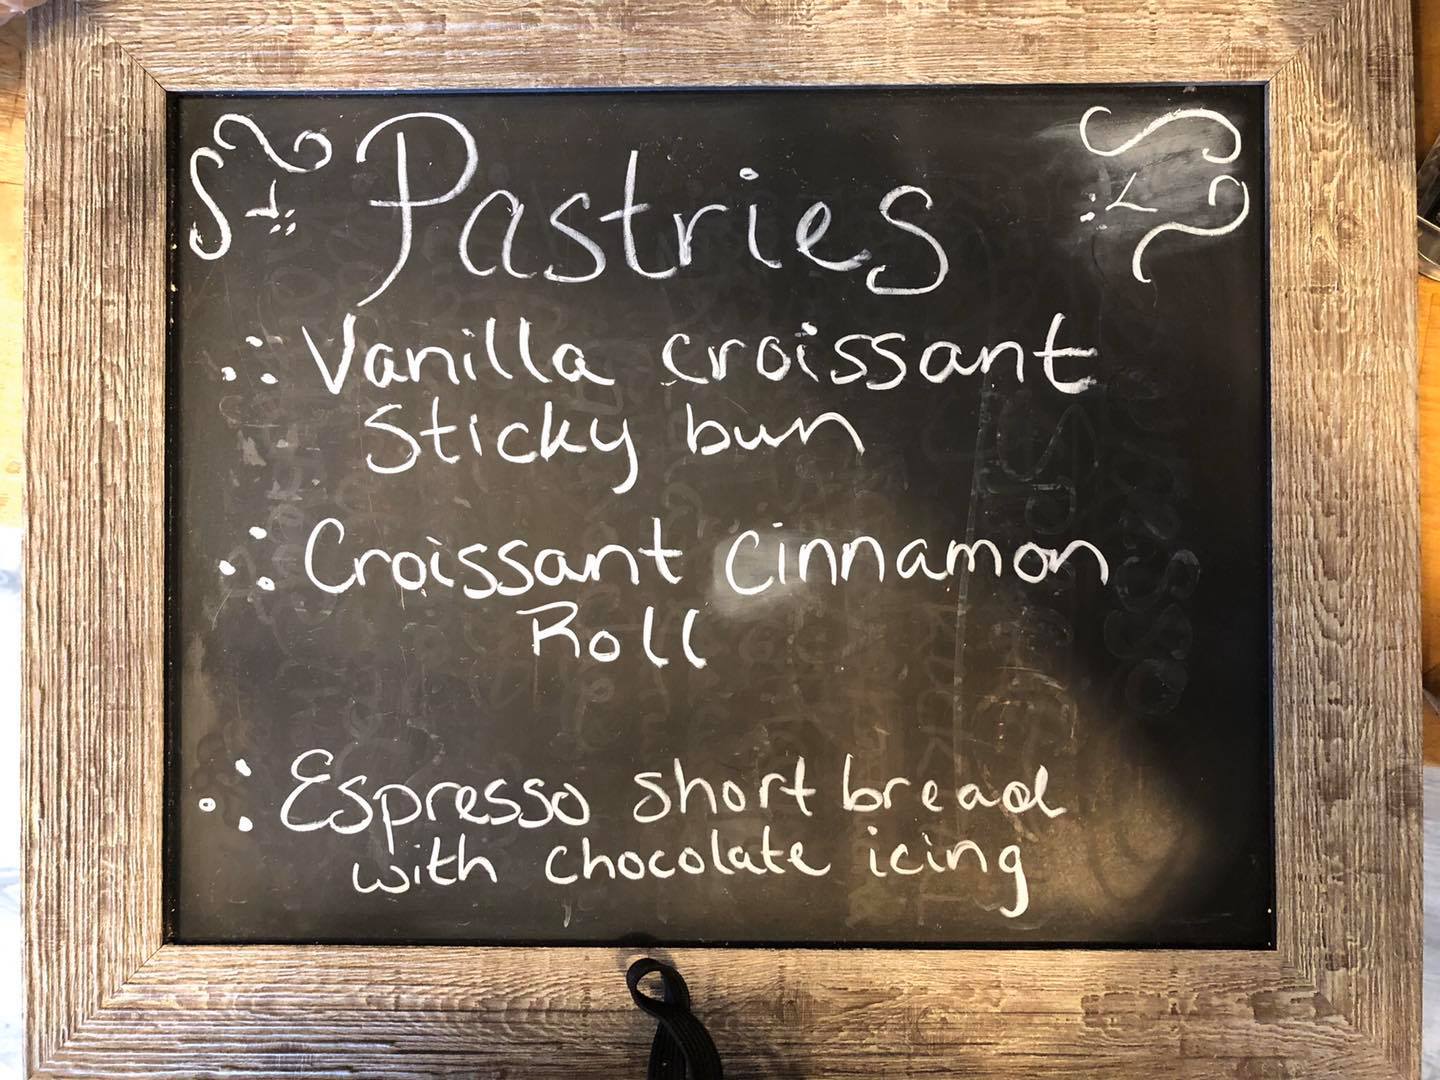 Pastries
Vanilla croissant
Sticky bun
Croissant cinnamon
Roll
Espresso short bread
with chocolate icing